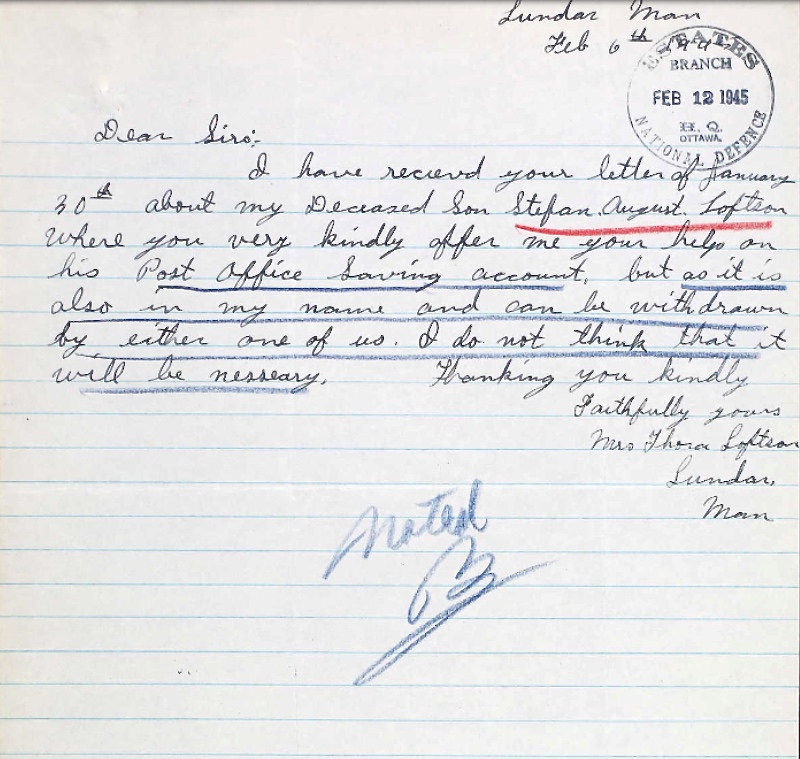 Lundar Man
Feb 6th 1945
ESTATES
BRANCH
FEB 12 1945
H. Q.
OTTAWA.
NATIONAL DEFENCE
Dear Sirs:-
I have recievd your letter of January
30th about my Deceased Son Stefan. August. Loftson
Where you very kindly offer me your help on
his Post Office Saving account, but as it is
also in my name and can be withdrawn
by either one of us. I do not think that it
will be nesseary. Thanking you kindly
Faithfully yours
Mrs Thora Loftson
Lundar,
Man
Noted